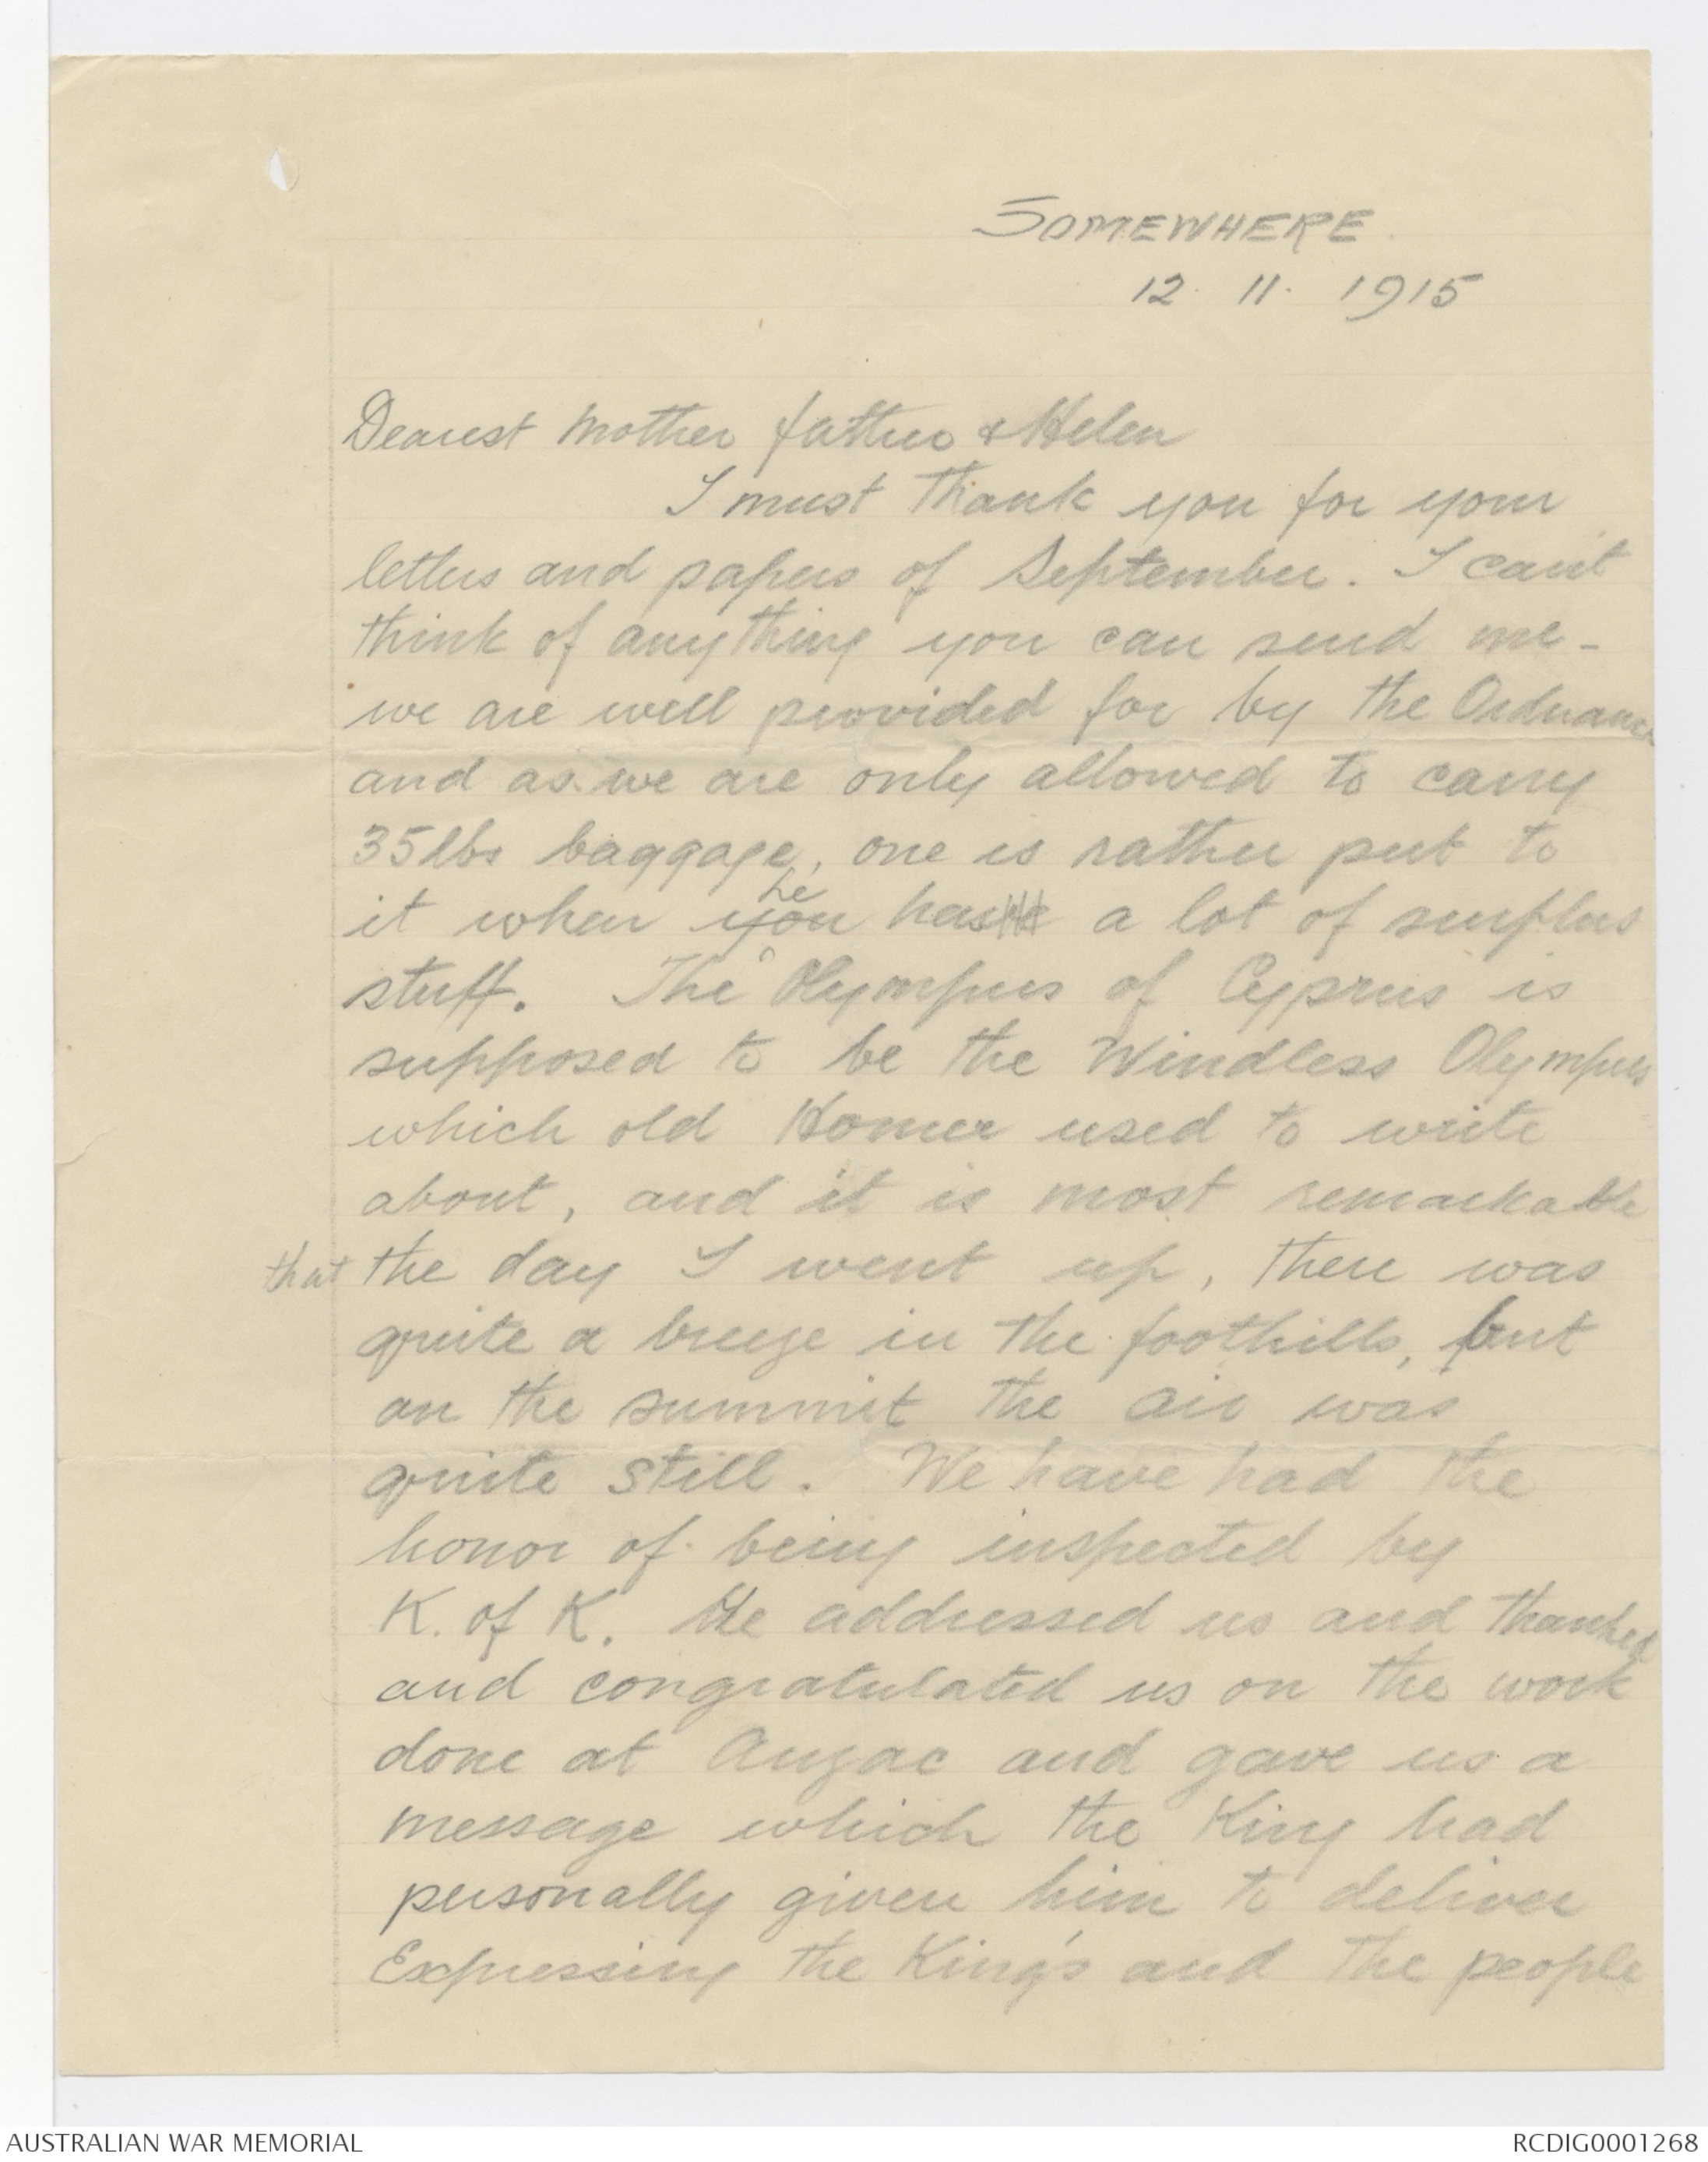 SOMEWHERE.
12. 11. 1915
Dearest Mother father & Helen
I must thank you for your
letters and papers of September. I can't
think of anything you can send me -
we are well provided for by the Ordnance
and as we are only allowed to carry
35lbs baggage, one is rather put to
it when you he has a lot of surplus
stuff. The Olympus of Cyprus is
supposed to be the Windless Olympus
which old Homer used to write
about, and it is most remarkable
that the day I went up, there was
quite a breeze in the foothills, but
on the summit the air was
quite still. We have had the
honor of being inspected by
K. of K. He addressed us and thanked
and congratulated us on the work
done at Anzac and gave us a
message which the King had
personally given him to deliver
Expressing the King's and the people
AUSTRALIAN WAR MEMORIAL
RCDIG0001268